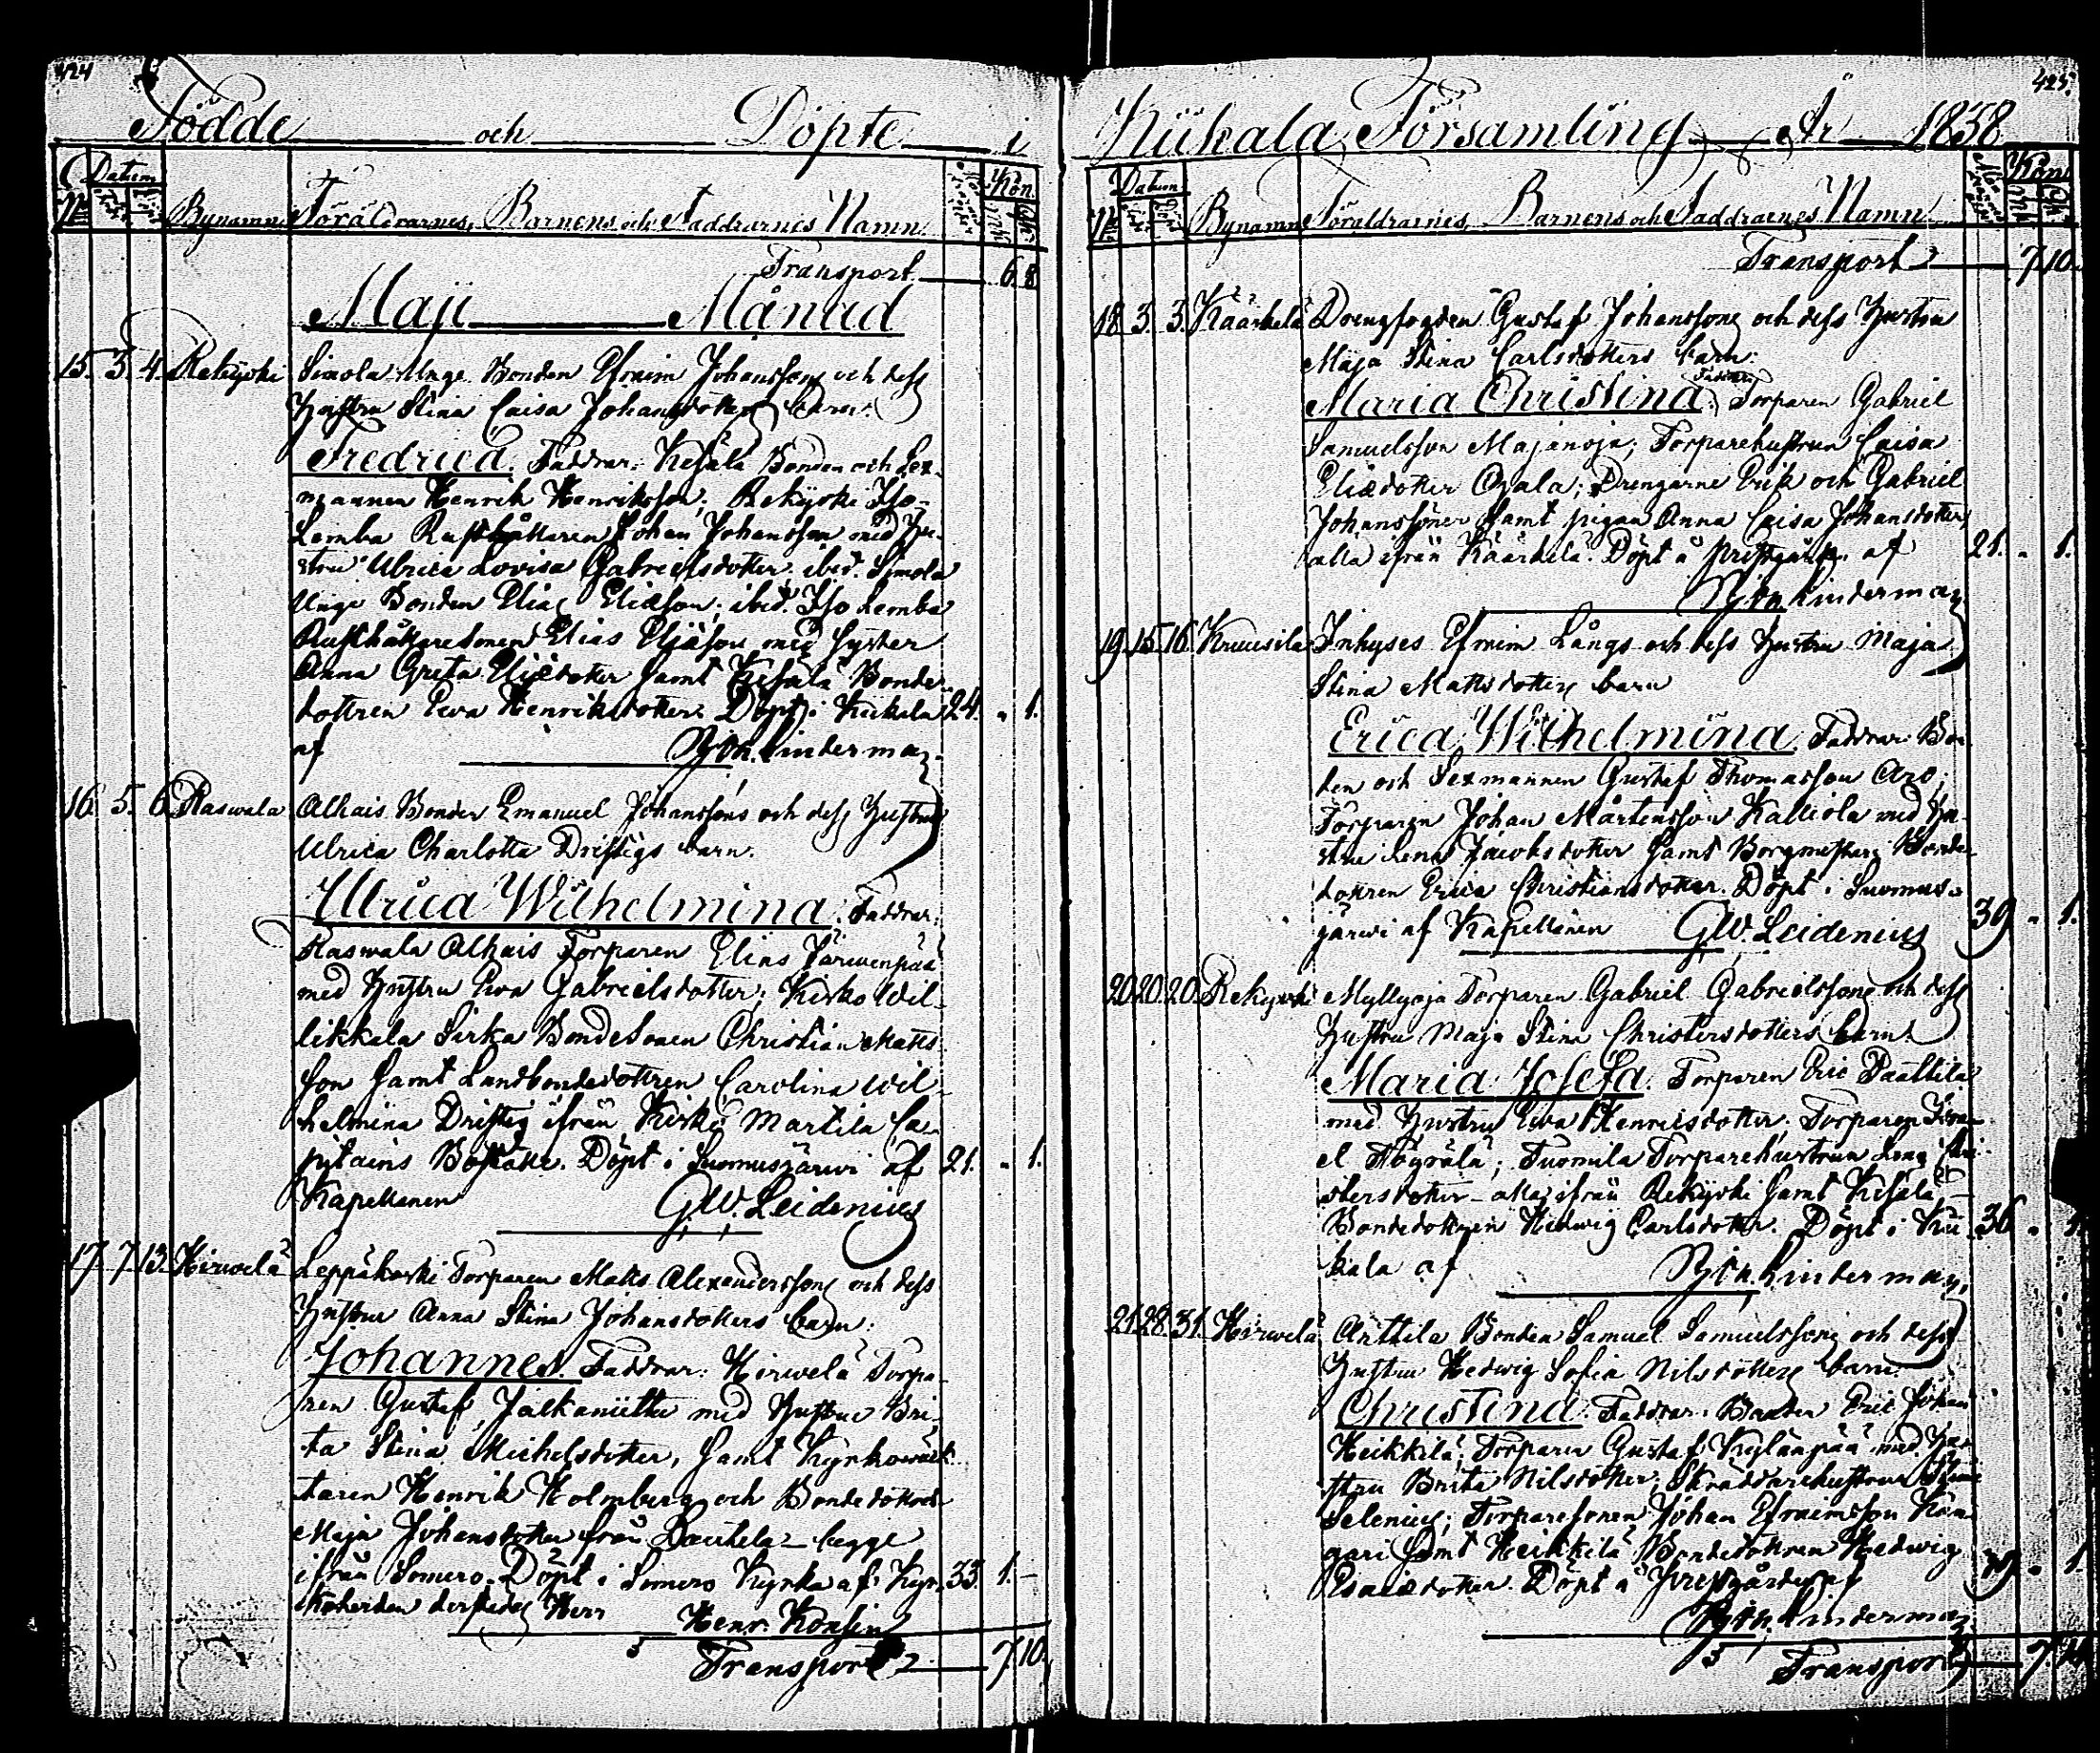 424
Födde och Döpte i
Datum
Kön
Bynamn Föräldrarnes, Barnens och Faddrarnes Namn
Transport 6. 8.
Maji Månad
15. 3. 4. Rekijoki Simola Unge Bonden Efraim Johanssons och dess
Hustru Stina Caisa Johansdotters barn:
Fredrica. Faddrar: Kesälä Bonden och Sex-
mannen Henrik Henriksson; Rekijoki Iso-
Lemba Rusthållaren Johan Johansson med Hu-
stru Ulrica Lovisa Gabrielsdotter ibid. Simola
Unge Bonden Elias Eliæson; ibid. Iso Lemba
Rusthållaresonen Elias Eliæson med Syster
Anna Greta Eliædotter samt Kesälä Bonde-
dottren Ewa Henriksdotter. Döpt i Kiikala 24. - 1.
af Linderman.
16. 5. 6. Raswala Alhais Bonden Emanuel Johanssons och dess Hustru
Ulrica Charlotta Driftigs barn.
Ulrica Wilhelmina. Faddrar:
Raswala Alhais Torparen Elias Järwenpää
med Hustru Ewa Gabrielsdotter; Kisko Wil-
likkala Sirka Bondesonen Christian Matts-
son samt Landbondedottren Carolina Wil-
helmina Driftig ifrån Kisko Martila Ca-
pitains Boställe. Döpt i Suomusjärwi af 21. - 1.
Kapellanen G.W. Leidenius
17. 7. 13. Hirwelä Leppäkoski Torparen Matts Alexanderssons och dess
Hustru Anna Stina Johansdotters barn:
Johannes. Faddrar: Hirwelä Torpa-
ren Gustaf Jalkaniittu med Hustru Bri-
ta Stina Michelsdotter, samt Kyrkowäk-
taren Henrik Holmberg och Bondedottren
Maja Johansdotter från begge
ifrån Somero. Döpt i Somero Kyrka af Kyr- 33. 1. -
koherden derstedes Herr Henr. Konsin
Transport 7. 10.
425.
Kiikala Församling År 1838
Datum
Kön
Bynamn Föräldrarnes, Barnens och Faddrarnes Namn
Transport 7. 10.
18. 3. 3. Käärkelä Drengfogden Gustaf Johanssons och dess Hustru
Maja Stina Carlsdotters barn:
Maria Christina. Faddrar: Torparen Gabriel
Samuelsson Majanoja; Torparehustrun Caisa
Eliædotter Ojala; Drengarne Erik och Gabriel
Johanssöner samt pigan Anna Caisa Johansdotter,
alla ifrån Käärkelä. Döpt å prestgården af 21. - 1.
Linderman
19. 15. 16. Kruusila Inhyses Efraim Långs och dess Hustru Maja
Stina Mattsdotters barn
Erica Wilhelmina. Faddrar: Bon-
den och Sexmannen Gustaf Thomasson Aro;
Torparen Johan Mårtensson Kalliola med Hu-
stru Lena Jacobsdotter samt Borgmästars Bonde-
dottren Erica Christiansdotter. Döpt i Suomus-
järwi af Kapellanen G.W. Leidenius 39 - 1.
20. 20. 20. Rekijoki Myllyoja Torparen Gabriel Gabrielssons och dess
Hustru Maja Stina Christersdotters barn:
Maria Josefa. Torparen Eric Paattila
med Hustru Ewa Henricsdotter; Torparen Isra-
el Töyrälä; Tuomila Torparehustrun Lena Chri-
stersdotter - alla ifrån Rekijoki samt Kesälä
Bondedottren Hedwig Carlsdotter. Döpt i Kii- 36 - 1.
kala af Linderman.
21. 28. 31. Hirwelä Anttila Bonden Samuel Samuelssons och dess
Hustru Hedwig Sofia Nilsdotters barn.
Christina. Faddrar: Bonden Eric Johan
Heikkilä; Torparen Gustaf Kylänpää med Hu-
stru Brita Nilsdotter; Skräddarehustrun Stina
Selenius; Torparesonen Johan Efraimsson Kan-
gari samt Heikkilä Bondedottren Hedwig
Esaiædotter. Döpt å prestgården af 39 - 1.
Linderman
Transport 7. 14.